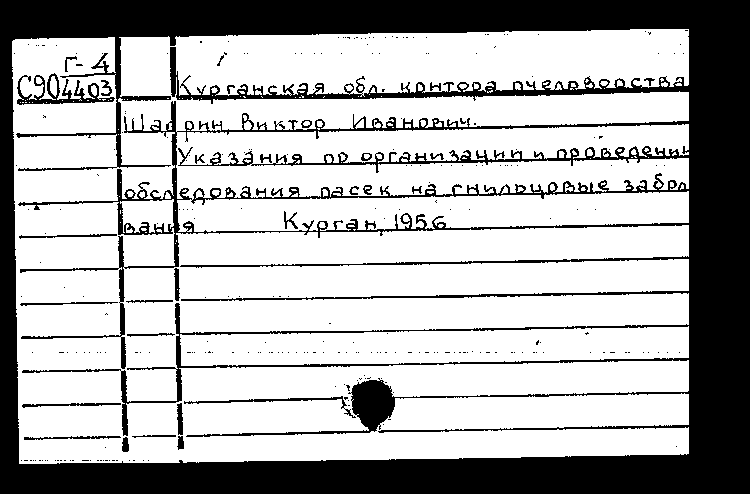 Г-4
С904403
Курганская обл. контора пчеловодства
Шадрин, Виктор Иванович.
Указания по организации и проведени
обследования пасек на гнильцовые забол
вания. Курган, 1956